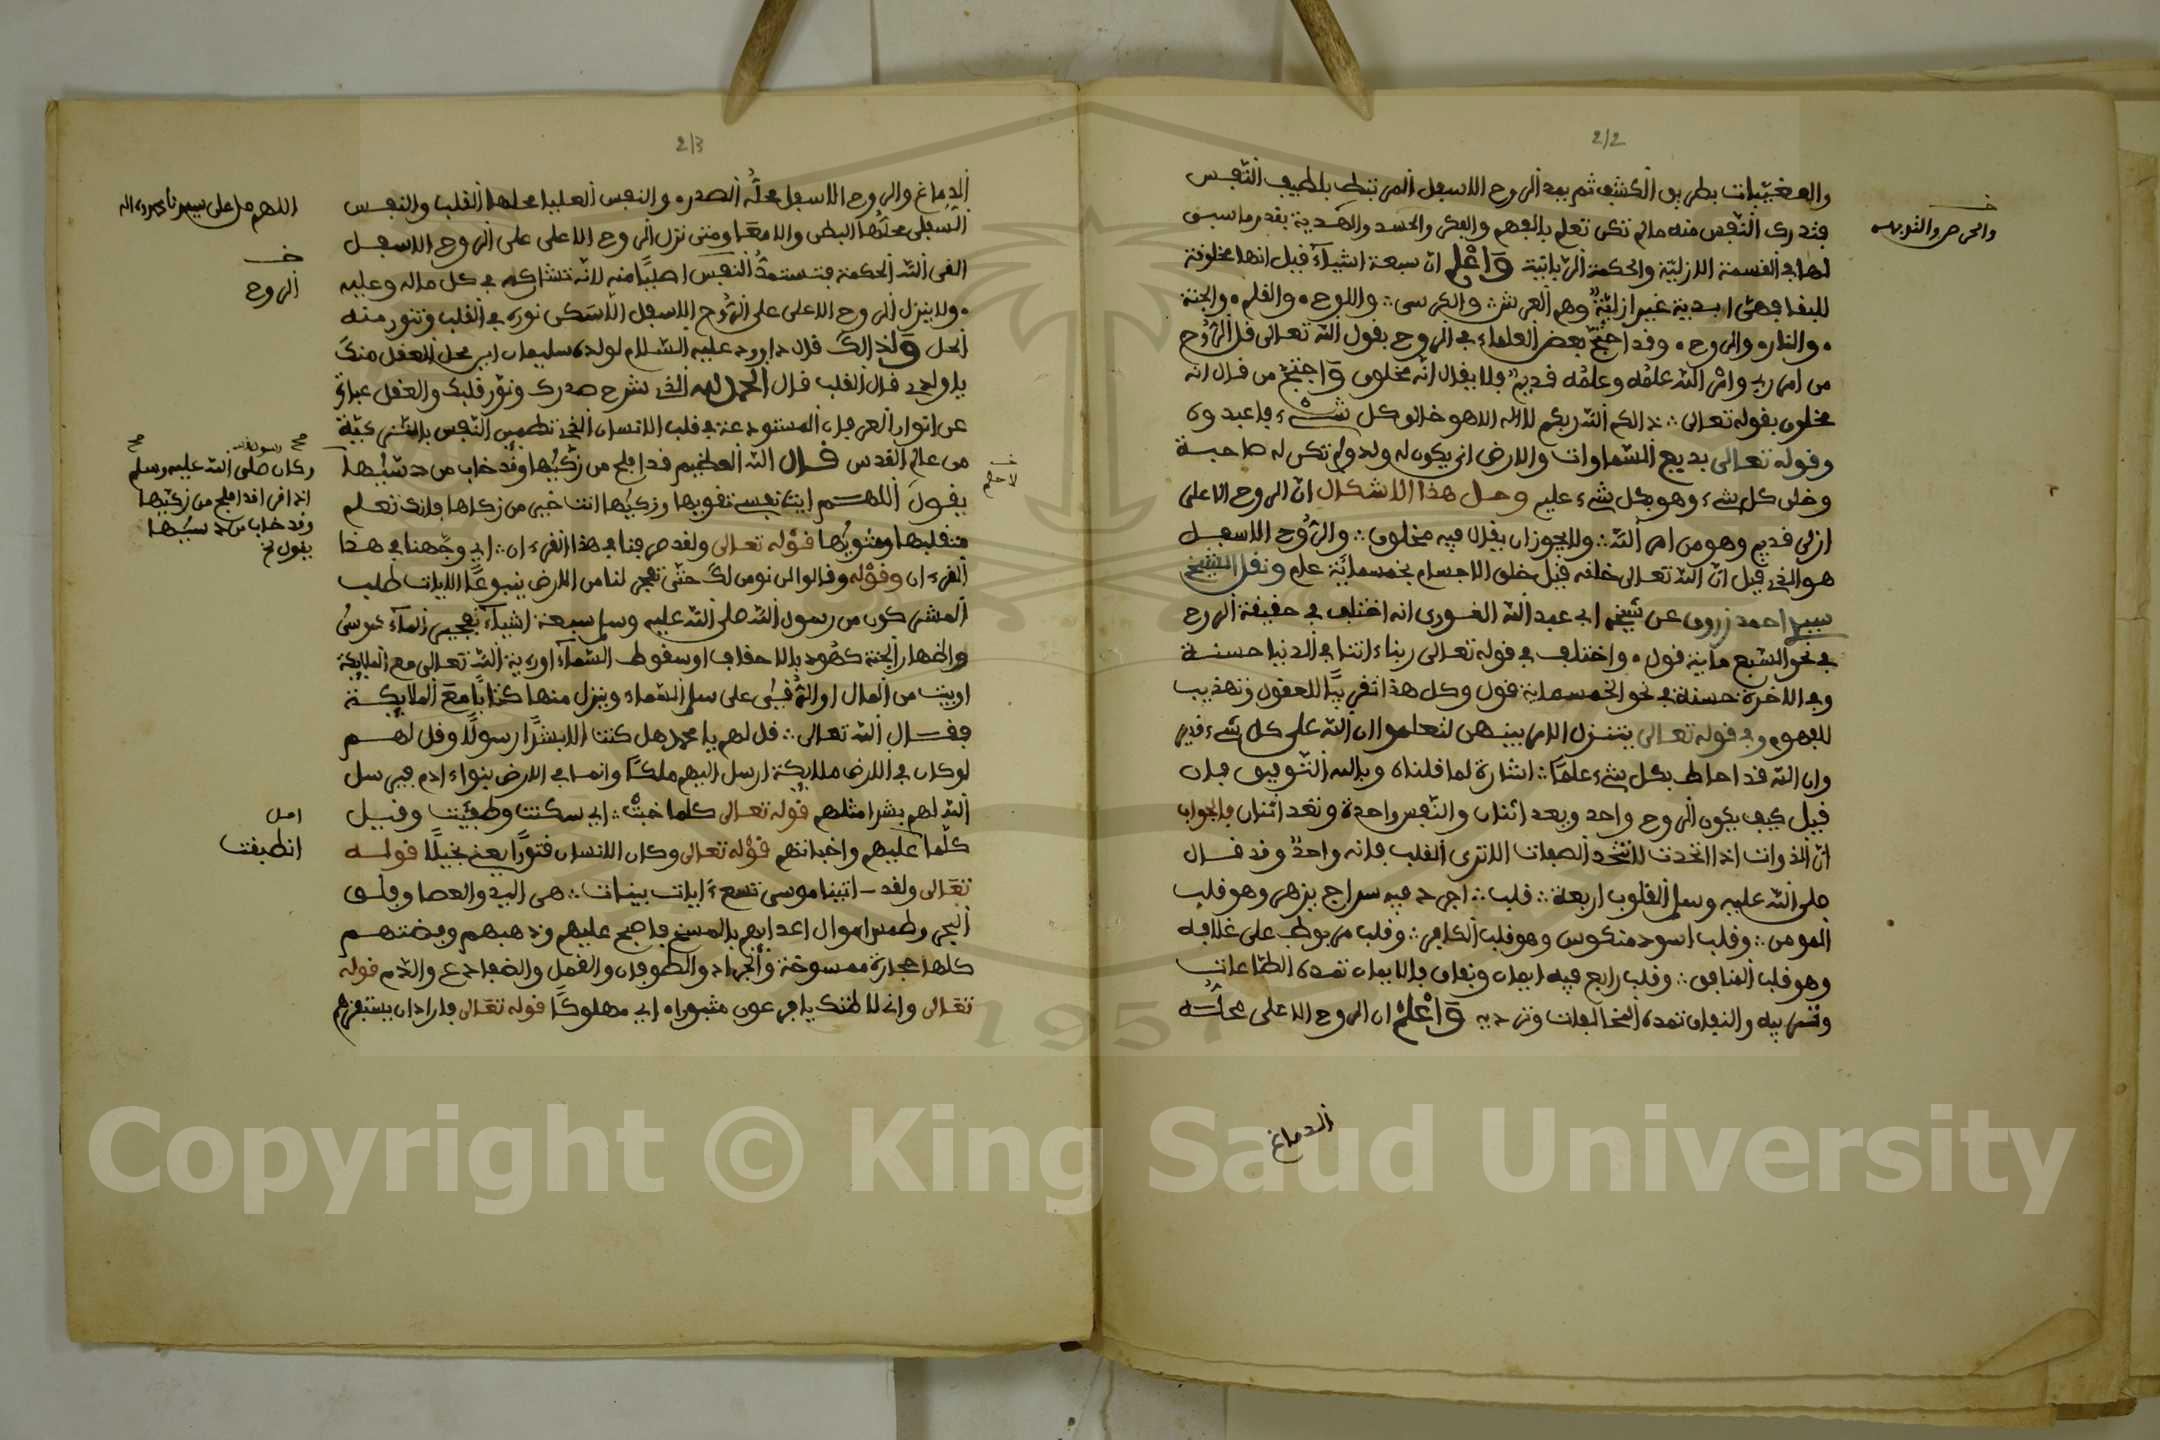 2/2
والمغيبات بطريق الكشف ثم يمد الروح الاسفل المرتبط بلطيف النفس
فتدرك النفس منه مالم تكن تعلم بالفهم والفكر والحسد والهدية بقدر ما سبق
لها في القسمة الازلية والحكمة الربانية وَاعْلم ان سبعة اشياء قيل انها مخلوقة
للبقا فهي ابدية غير ازلية وهم العرش والكرسي واللوح والقلم والجنة
والنار والروح وقد احتج بعض العلماء في الروح بقول الله تعالى قل الروح
من امر ربي وامر الله علمه وعلمه قديم فلا يقال انه مخلوق واحتج من قال انه
مخلوق بقوله تعالى ذالكم الله ربكم لا اله الا هو خالق كل شيء فاعبدوه
وقوله تعالى بديع السماوات والارض انى يكون له ولد ولم تكن له صاحبة
وخلق كل شيء وهو بكل شيء عليم وحل هذا الاشكال ان الروح الاعلى
ازلي قديم وهو من امر الله ولا يجوز ان يقال فيه مخلوق والروح الاسفل
هو الذي قيل ان الله تعالى خلقه قبل خلق الاجسام بخمسماية عام ونقل الشيخ
سيدي احمد زروق عن شيخه ابي عبد الله الغوري انه اختلف في حقيقة الروح
في نحو السبع ماية قول واختلف في قوله تعالى ربنا ءاتنا في الدنيا حسنة
وفي الاخرة حسنة في نحو الخمسماية قول وكل هذا تقريبا للعقول وتهذيب
للفهوم وفي قوله تعالى يتنزل الامر بينهن لتعلموا ان الله على كل شيء قدير
وان الله قد احاط بكل شيء علما اشارة لما قلناه وبالله التوفيق فان
قيل كيف يكون الروح واحد ويعد اثنان والنفس واحدة وتعد اثنان فالجواب
ان الذوات اذا اتحدت لا تتحد الصفات الا ترى القلب فانه واحد وقد قال
صلى الله عليه وسلم القلوب اربعة قلب اجرد فيه سراج يزهر وهو قلب
المومن وقلب اسود منكوس وهو قلب الكافر وقلب مربوط على غلافه
وهو قلب المنافق وقلب رابع فيه ايمان ونفاق فالايمان تمده الطاعات
والنفاق تمده المخالفات وترديه وَاعْلم ان الروح الاعلى محله
الدماغ
2/3
الدماغ والروح الاسفل محله الصدر والنفس العليا محلها القلب والنفس
السفلى محلها البطن والامعا ومتى نزل الروح الاعلى على الروح الاسفل
القى الله الحكمة فتستمد النفس منه لانه تشاركه في كل ماله وعليه
ولا ينزل الروح الاعلى على الروح الاسفل الا سكن نوره في القلب وتنور منه
الحل وَلذالك قال داوود عليه السلام لولده سليمان اين محل العقل منك
يا ولدي قال القلب قال الحمد لله الذي شرح صدرك ونور قلبك والعقل عبارة
عن انوار العرفان المستودعة في قلب الانسان الذي تطمس النفس بالشر
من عالم القدس قال الله العظيم قد افلح من زكيها وقد خاب من دسيها
يقول اللهم ايت نفسي تقويها وزكيها انت خير من زكاها فانك تعلم
منقلبها ومثويها قوله تعالى ولقد صرفنا في هذا القرءان اي وجهنا في هذا
القرءان وقوله وقالوا لن نومن لك حتى تفجر لنا من الارض ينبوعا الايات طلب
المشركون من رسول الله صلى الله عليه وسلم سبعة اشياء تفجير الماء
واظهار الجنة بالاحقاف او سقوط السماء او رية الله تعالى مع الملايكة
او بيت من المال او الرقي على سلم السماء وينزل منها كتابا مع الملايكة
فقال الله تعالى قل لهم يا محمد هل كنت الا بشرا رسولا وقل لهم
لو كان في الارض ملايكة ارسل اليهم ملكا وانما في الارض بنواءادم فيرسل
الله لهم بشرا مثلهم قوله تعالى كلما خبت اي سكنت وطفيت وقيل
كلما عليهم واخذتهم قوله تعالى وكان الانسان قتورا يعني بخيلا قوله
تعالى ولقد اتينا موسى تسع ءايات بينات هي اليد والعصا وفلق
البحر وطمس اموال اعدايهم بالمسخ فاصبح عليهم وذهبهم وفضتهم
كلها حجارة ممسوخة والجراد والطوفان والقمل والضفادع والدم قوله
تعالى واني لاظنك يا فرعون مثبورا اي مهلوكا قوله تعالى فاراد ان يستفزهم
الروح
وكان صلى الله عليه وسلم
اذا قرا قد افلح من زكيها
وقد خاب من دسيها
يقول
اصل
انطفيت
Copyright © King Saud University
1957